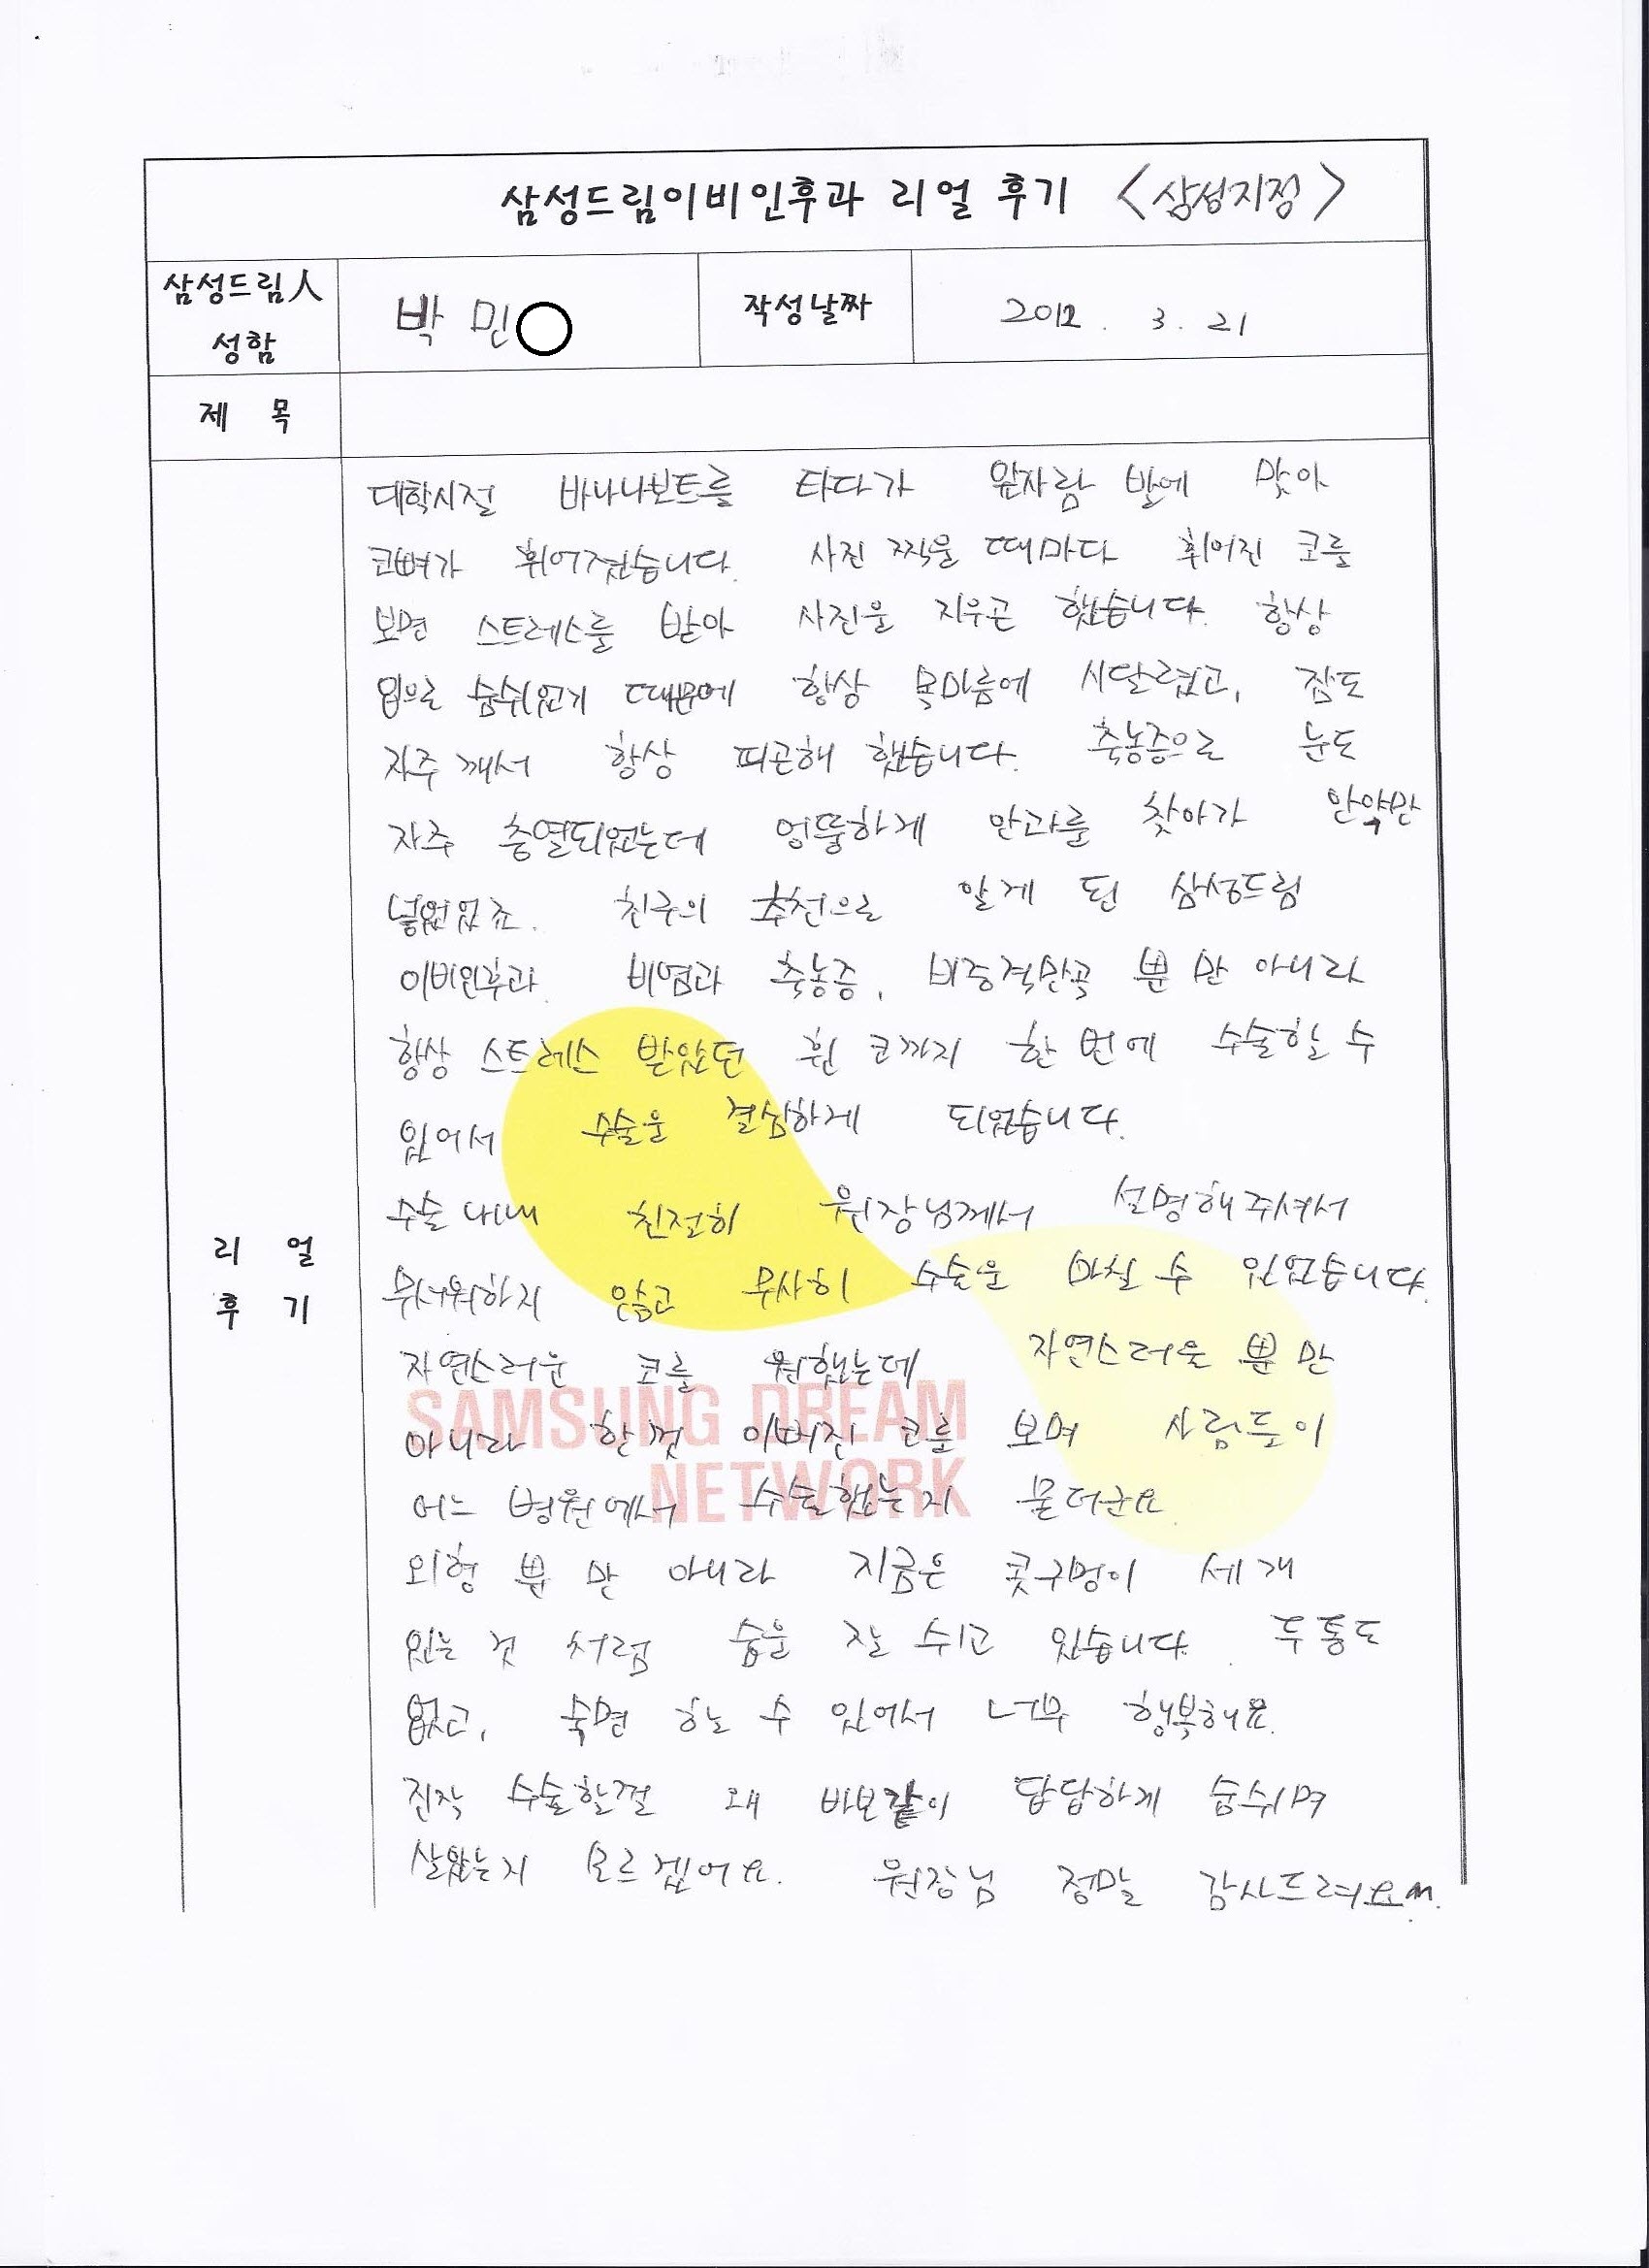 삼성드림이비인후과 리얼 후기 <삼성지정>
삼성드림人 성함
박 민○
작성날짜
2012. 3. 21
제 목
대학시절 바나나보트를 타다가 앞사람 발에 맞아
코뼈가 휘어졌습니다. 사진 찍을 때마다 휘어진 코를
보면 스트레스를 받아 사진을 지우곤 했습니다. 항상
입으로 숨쉬었기 때문에 항상 목마름에 시달렸고, 잠도
자주 깨서 항상 피곤해 했습니다. 축농증으로 눈도
자주 충열되었는데 엉뚱하게 안과를 찾아가 안약만
넣었었죠. 친구의 추천으로 알게 된 삼성드림
이비인후과. 비염과 축농증, 비중격만곡 뿐 만 아니라
항상 스트레스 받았던 휜 코까지 한 번에 수술할 수
있어서 수술을 결심하게 되었습니다.
수술 내내 친절히 원장님께서 설명해주셔서
무서워하지 않고 무사히 수술을 마칠 수 있었습니다.
자연스러운 코를 원했는데 자연스러운 뿐 만
아니라 한껏 이뻐진 코를 보며 사람들이
어느 병원에서 수술했는지 묻더군요
외형 뿐 만 아니라 지금은 콧구멍이 세 개
있는 것 처럼 숨을 잘 쉬고 있습니다. 두통도
없고, 숙면 하눌 수 있어서 너무 행복해요.
진작 수술할껄 왜 바보같이 답답하게 숨쉬며
살았는지 모르겠어요. 원장님 정말 감사드려요^^.
리 얼
후 기
SAMSUNG DREAM
NETWORK